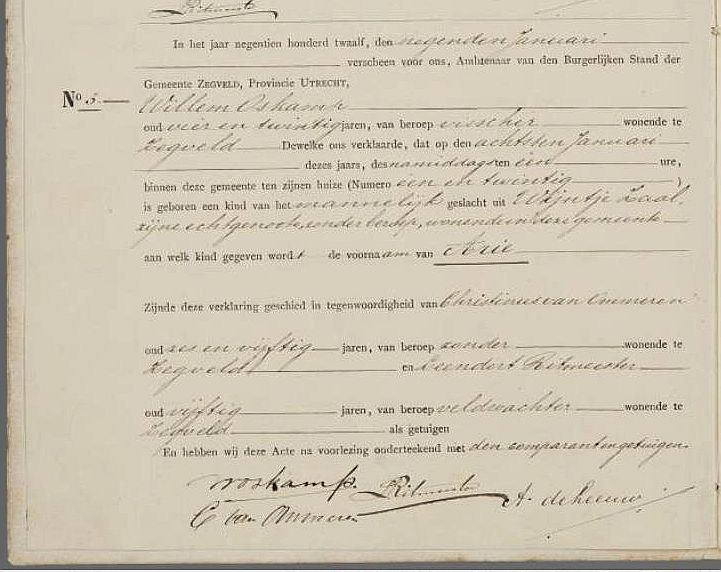 Ritmeester
In het jaar negentien honderd twaalf, den negenden Januari
verscheen voor ons, Ambtenaar van den Burgerlijken Stand der
Gemeente ZEGVELD, Provincie UTRECHT,
No. 5.
Willem Oskamp
oud vier en twintig jaren, van beroep visscher wonende te
Zegveld Dewelke ons verklaarde, dat op den achtsten Januari
dezes jaars, des namiddags ten een ure,
binnen deze gemeente ten zijnen huize (Numero een en twintig )
is geboren een kind van het mannelijk geslacht uit Wijntje Zaal,
zijne echtgenoote, zonder beroep, wonende in deze gemeente
aan welk kind gegeven wordt de voornaam van Arie
Zijnde deze verklaring geschied in tegenwoordigheid van Christinus van Ommeren
oud zes en vijftig jaren, van beroep zonder wonende te
Zegveld en Leendert Ritmeester
oud vijftig jaren, van beroep veldwachter wonende te
Zegveld als getuigen
En hebben wij deze Acte na voorlezing onderteekend met den comparant en getuigen.
W Oskamp. LRitmeester A. de Leeuw
C van Ommeren